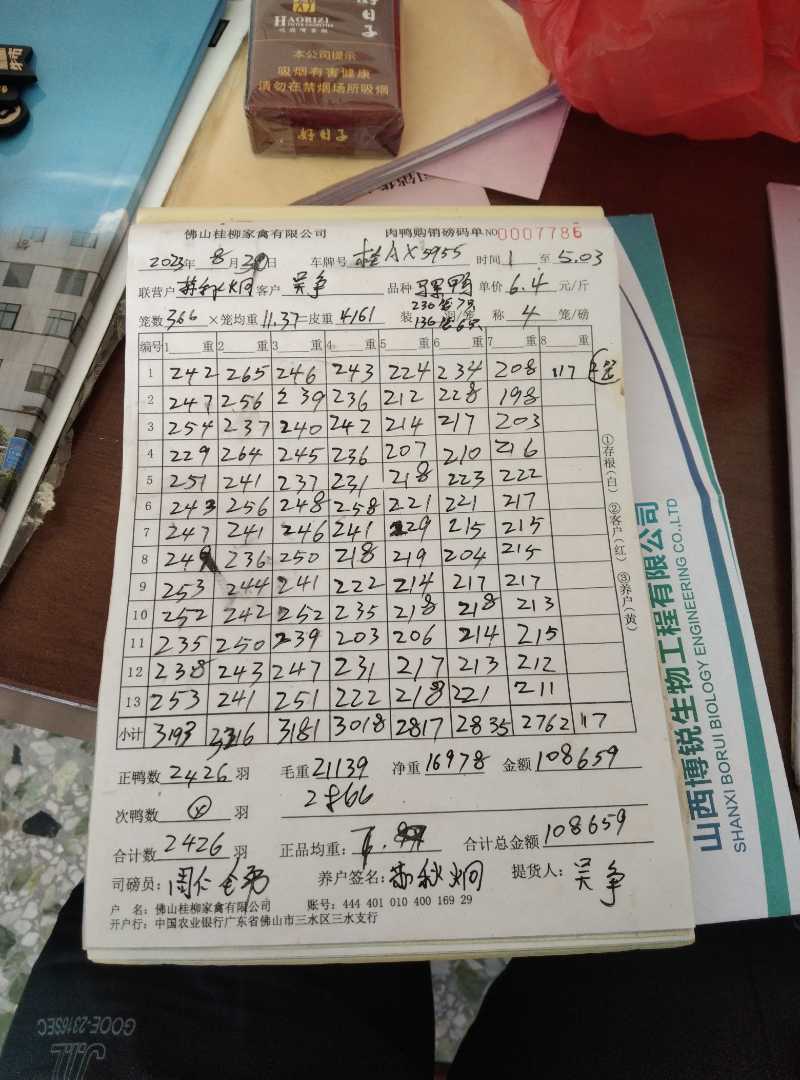 好日子
HAORIZI
本公司提示
吸烟有害健康
请勿在禁烟场所吸烟
好日子
佛山桂柳家禽有限公司 肉鸭购销磅码单 NO 0007786
2023年 8月30日 车牌号 桂AX5955 时间 1 至 5.03
联营户 客户 吴争 品种 单价 6.4 元/斤
笼数 366 ×笼均重 11.37 =皮重 4161 装 230笼7只 136笼6只 只/笼 称 4 笼/磅
编号 1 重 2 重 3 重 4 重 5 重 6 重 7 重 8 重
1 242 265 246 243 224 234 208 117
2 247 256 239 236 212 228 198
3 254 237 240 242 214 217 203
4 229 264 245 236 207 210 216
5 251 241 237 231 218 223 222
6 243 256 248 258 221 221 217
7 247 241 246 241 229 215 215
8 249 236 250 218 219 204 215
9 253 244 241 222 214 217 217
10 252 242 252 235 218 218 213
11 235 250 239 203 206 214 215
12 238 243 247 231 217 213 212
13 253 241 251 222 218 221 211
小计 3193 3216 3181 3018 2817 2835 2762 117
①存根(白) ②客户(红) ③养户(黄)
正鸭数 2426 羽 毛重 21139 净重 16978 金额 108659
次鸭数 羽 2866
合计数 2426 羽 正品均重: 合计总金额 108659
司磅员: 养户签名: 提货人: 吴争
户 名: 佛山桂柳家禽有限公司 账号: 444 401 010 400 169 29
开户行: 中国农业银行广东省佛山市三水区三水支行
山西博锐生物工程有限公司
SHANXI BORUI BIOLOGY ENGINEERING CO.,LTD
GOOE-2316SEC